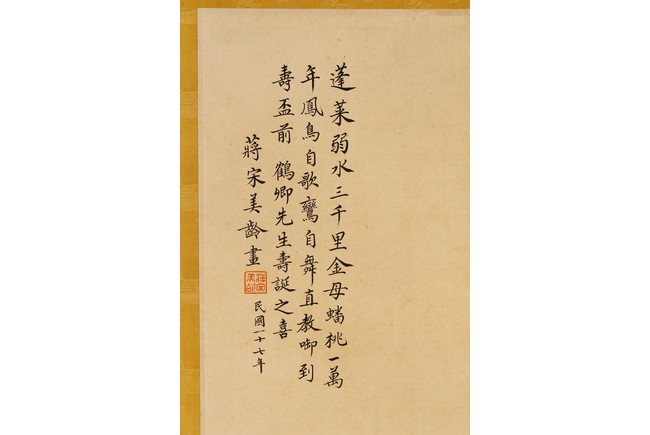 蓬萊弱水三千里金母蟠桃一萬
年鳳鳥自歌鸞自舞直教啣到
壽盃前 鶴卿先生壽誕之喜
蔣宋美齡畫
民國一十七年